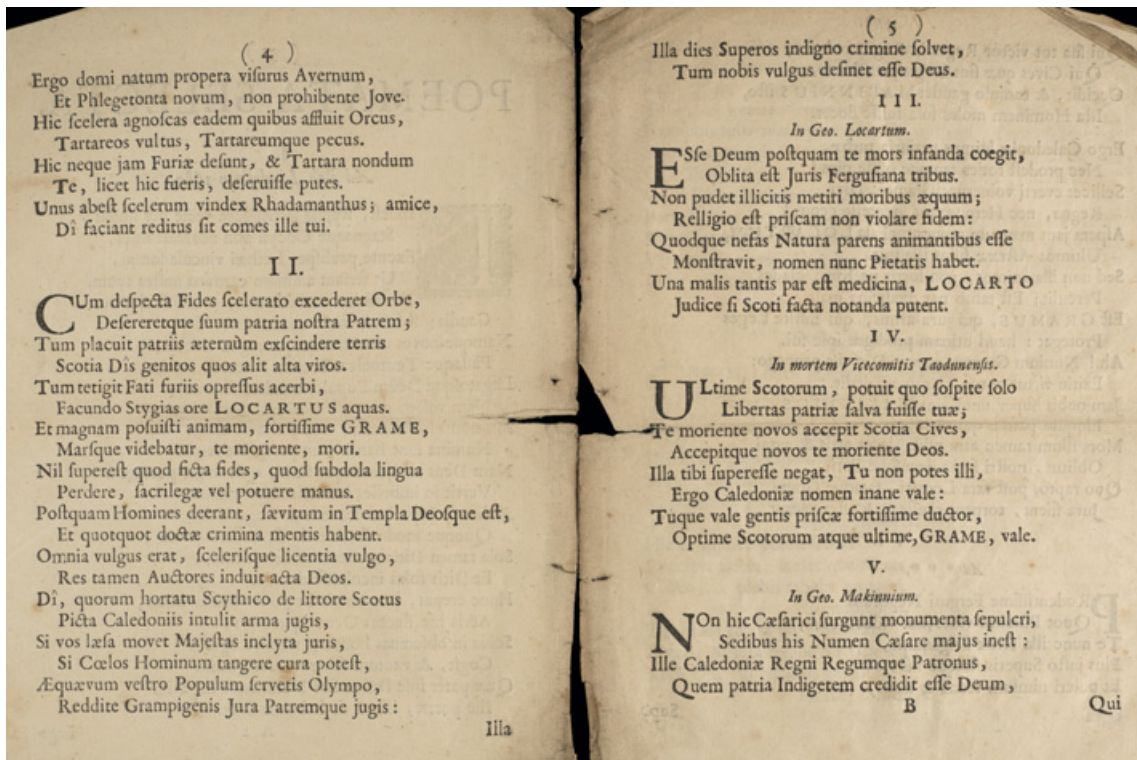 ( 4 )
Ergo domi natum propera viſurus Avernum,
Et Phlegetonta novum, non prohibente Jove.
Hic ſcelera agnoſcas eadem quibus affluit Orcus,
Tartareos vultus, Tartareumque pecus.
Hic neque jam Furiæ deſunt, & Tartara nondum
Te, licet hic fueris, deſeruiſſe putes.
Unus abeſt ſcelerum vindex Rhadamanthus; amice,
Dî faciant reditus ſit comes ille tui.
II.
CUm deſpecta Fides ſcelerato excederet Orbe,
Deſereretque ſuum patria noſtra Patrem;
Tum placuit patriis æternùm exſcindere terris
Scotia Dîs genitos quos alit alta viros.
Tum tetigit Fati furiis oppreſſus acerbi,
Facundo Stygias ore LOCARTUS aquas.
Et magnam poſuiſti animam, fortiſſime GRAME,
Marſque videbatur, te moriente, mori.
Nil ſupereſt quod ficta fides, quod ſubdola lingua
Perdere, ſacrilegæ vel potuere manus.
Poſtquam Homines deerant, ſævitum in Templa Deoſque eſt,
Et quotquot doctæ crimina mentis habent.
Omnia vulgus erat, ſceleriſque licentia vulgo,
Res tamen Auctores induit acta Deos.
Dî, quorum hortatu Scythico de littore Scotus
Picta Caledoniis intulit arma jugis,
Si vos læſa movet Majeſtas inclyta juris,
Si Cœlos Hominum tangere cura poteſt,
Æquævum veſtro Populum ſervetis Olympo,
Reddite Grampigenis Jura Patremque jugis:
Illa
( 5 )
Illa dies Superos indigno crimine ſolvet,
Tum nobis vulgus deſinet eſſe Deus.
III.
In Geo. Locartum.
ESſe Deum poſtquam te mors infanda coegit,
Oblita eſt Juris Ferguſiana tribus.
Non pudet illicitis metiri moribus æquum;
Relligio eſt priſcam non violare fidem:
Quodque nefas Natura parens animantibus eſſe
Monſtravit, nomen nunc Pietatis habet.
Una malis tantis par eſt medicina, LOCARTO
Judice ſi Scoti facta notanda putent.
IV.
In mortem Vicecomitis Taodunenſis.
ULtime Scotorum, potuit quo ſoſpite ſolo
Libertas patriæ ſalva fuiſſe tuæ;
Te moriente novos accepit Scotia Cives,
Accepitque novos te moriente Deos.
Illa tibi ſupereſſe negat, Tu non potes illi,
Ergo Caledoniæ nomen inane vale:
Tuque vale gentis priſcæ fortiſſime ductor,
Optime Scotorum atque ultime, GRAME, vale.
V.
In Geo. Makinnium.
NOn hic Cæſarici ſurgunt monumenta ſepulcri,
Sedibus his Numen Cæſare majus ineſt:
Ille Caledoniæ Regni Regumque Patronus,
Quem patria Indigetem credidit eſſe Deum,
B Qui